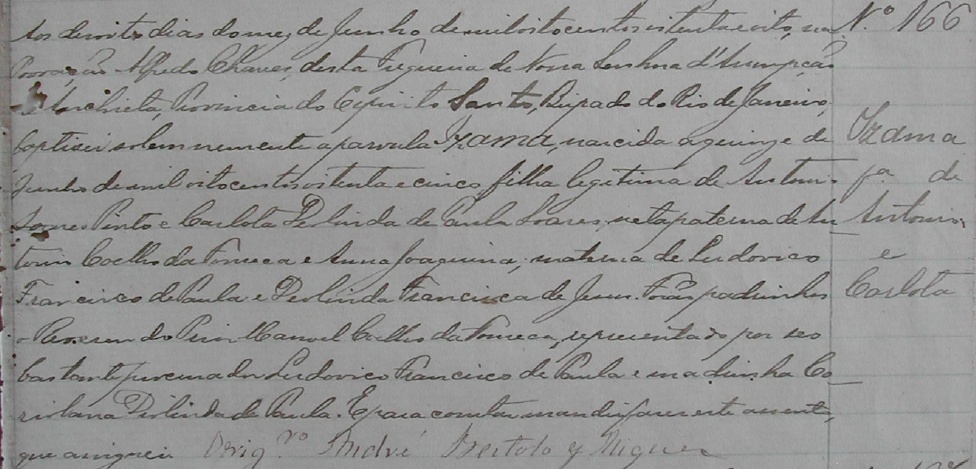 Aos dezoito dias do mez de Junho de mil oito centos oitenta e oito, na
Povoação Alfredo Chaves, desta Freguesia de Nossa Senhora d'Assumpção
d'Anchieta, Provincia do Espirito Santo, Bispado do Rio de Janeiro,
baptisei solemnemente a parvula Izama, nascida a quinze de
Junho de mil oitocentos oitenta e cinco filha legitima de Antonio
Soares Pinto e Carlota Deolinda de Paula Soares, neta paterna de An
tonio Coelho da Fonseca e Anna Joaquina; materna de Ludovico
Francisco de Paula e Deolinda Francisca de Jesus. Forão padrinhos
o Reverendo Manoel Coelho da Fonseca, representado por seo
bastante procurador Ludovico Francisco de Paula e madrinha Co
riolana Deolinda de Paula. E para constar mandei fazer este assento,
que assignei. Vig.ro André
Nº 166
Izama
fª de
Antonio
e
Carlota